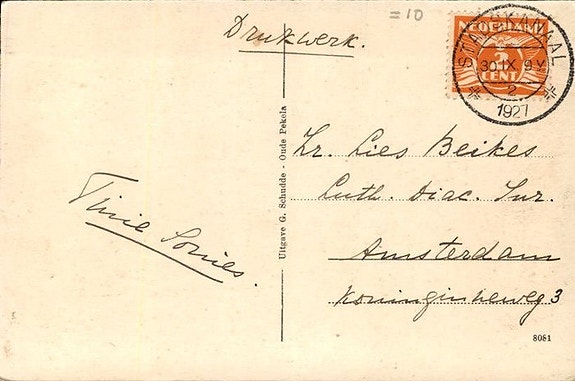 = 10
Drukwerk.
NEDERLAND
3
CENT
STADSKANAAL
30 IX 9 V
2
1927
Zr. Lies Beikes
Luth. Diac. Inr.
Amsterdam
Koninginneweg 3
Tinie Sonies.
Uitgave G. Schudde - Oude Pekela
8081